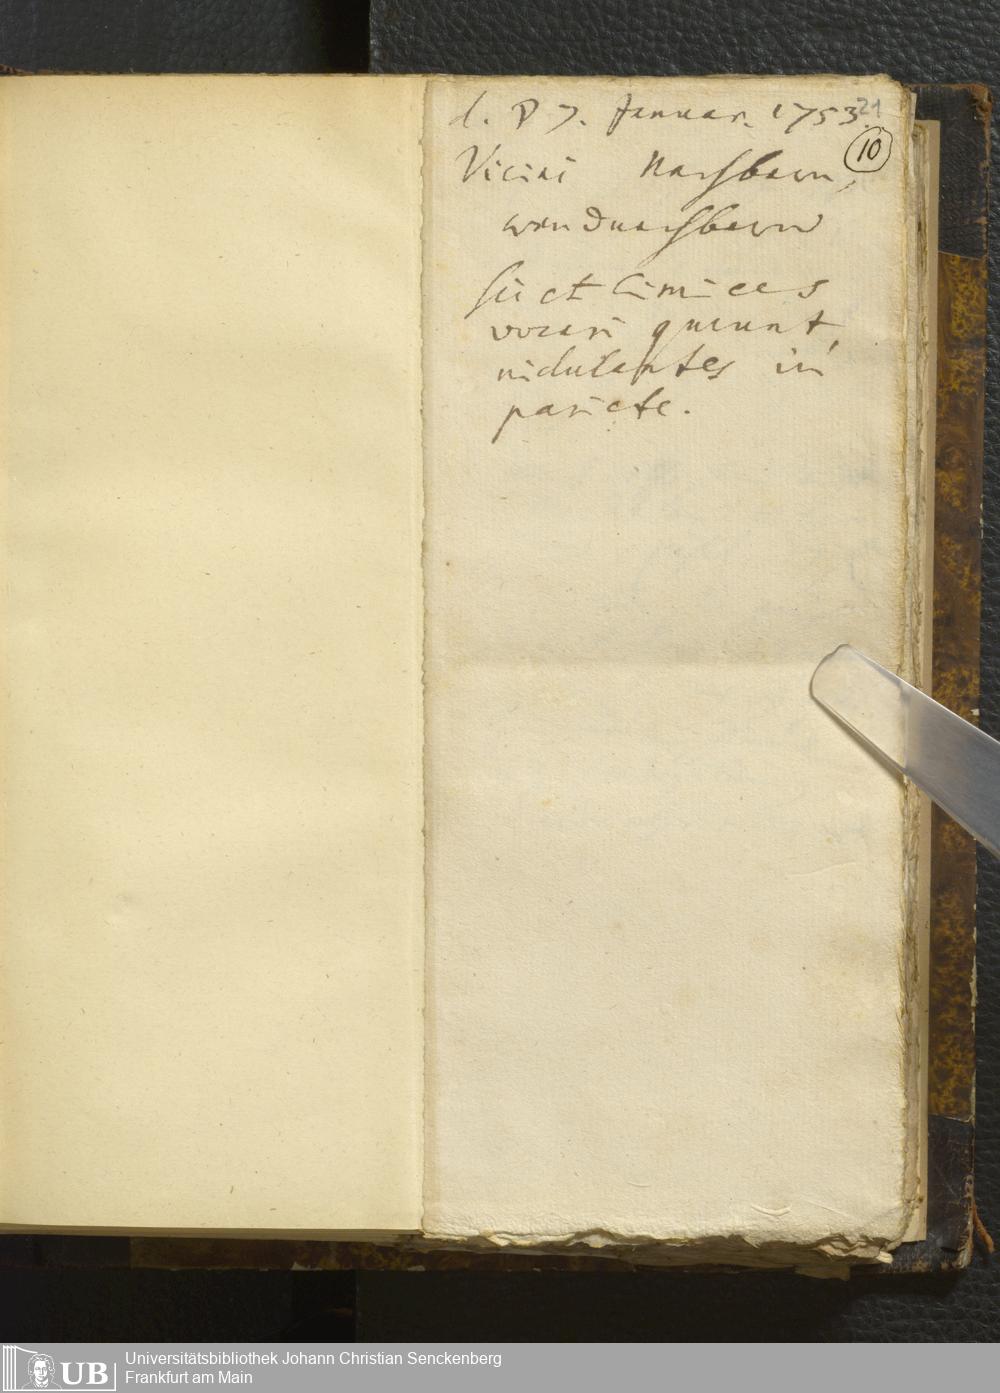 d. 7. Januar. 1753. 21
10
Vicini Nachbarn,
wandnachbarn
sic et Cimices
vocari queunt,
nidulantes in
pariete.
UB Universitätsbibliothek Johann Christian Senckenberg
Frankfurt am Main